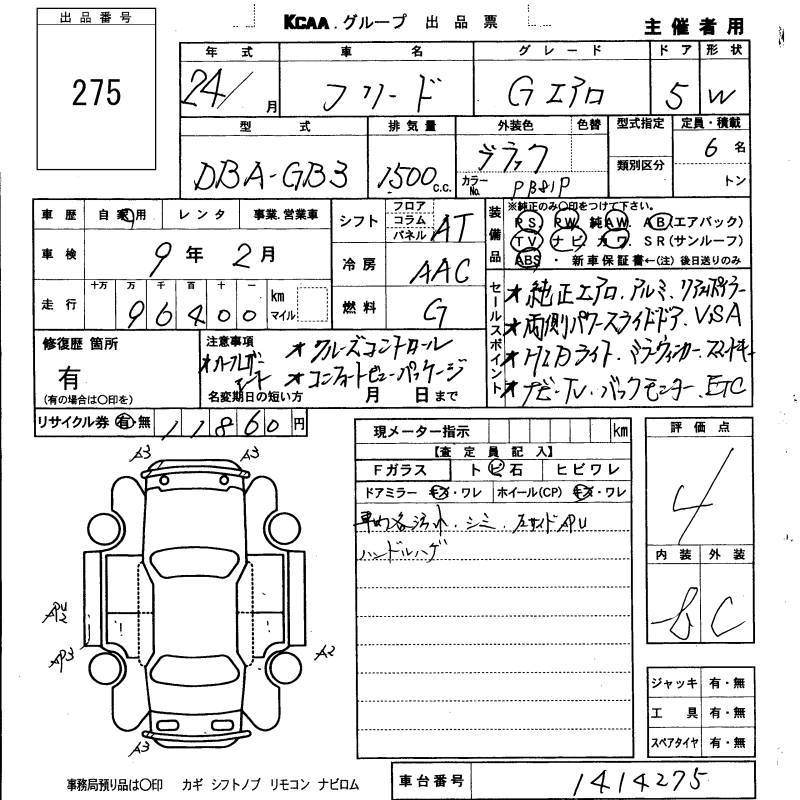 出品番号
275
KCAA.グループ 出品票
主催者用
年式 車名 グレード ドア 形状
24/ 月 フリード Gエアロ 5 W
型式 排気量 外装色 色替 型式指定 定員・積載
DBA-GB3 1500 c.c. ブラック
カラーNo. PB81P
類別区分
6 名
トン
車歴 自家用 レンタ 事業.営業車
車検 9年 2月
走行 十万 万 千 百 十 一
96400 km マイル
シフト フロア コラム パネル AT
冷房 AAC
燃料 G
装備品
※純正のみ〇印をつけて下さい。
PS PW 純AW AB(エアバック)
TV ナビ カワ SR(サンルーフ)
ABS ・ 新車保証書←(注)後日送りのみ
セールスポイント
★純正エアロ.アルミ.リアスポイラー
★両側パワースライドドア.VSA
★HIDライト.ミラーウィンカー.スマートキー
★ナビ・TV.バックモニター.ETC
修復歴 箇所
有
(有の場合は〇印を)
注意事項
★クルーズコントロール
★コンフォートビューパッケージ
名変期日の短い方 月 日まで
リサイクル券 有・無 11860 円
現メーター指示 km
【査定員記入】
Fガラス ト ビ 石 ヒビワレ
ドアミラー キズ・ワレ ホイール(CP) キズ・ワレ
車内各汚れ.シミ.左サイドAPU
ハンドルハゲ
評価点
4
内装 外装
b C
A3 A3
APU2
AP3
A2
A3
ジャッキ 有・無
工具 有・無
スペアタイヤ 有・無
事務局預り品は〇印 カギ シフトノブ リモコン ナビロム
車台番号 1414275